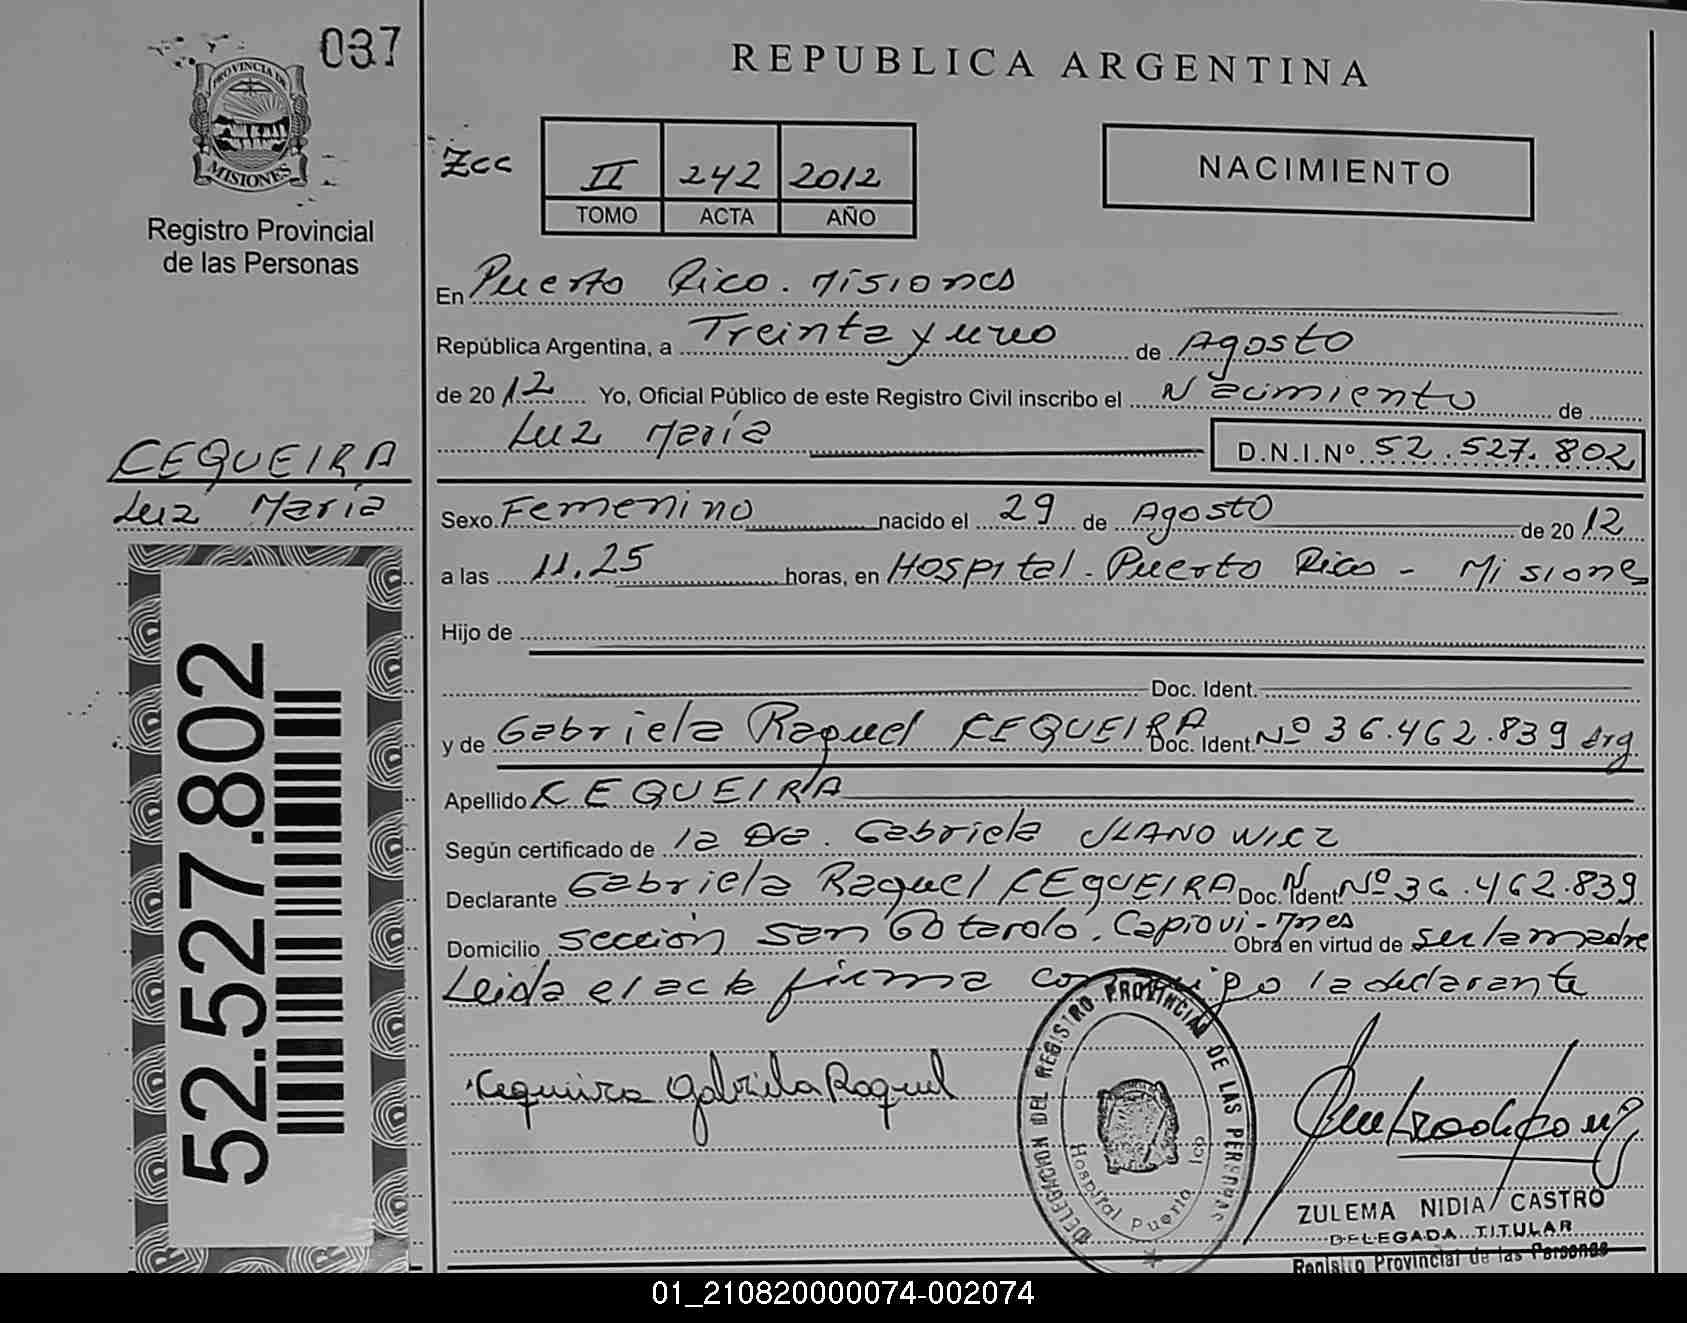 037
PROVINCIA DE
MISIONES
Registro Provincial
de las Personas
REPUBLICA ARGENTINA
Zcc
II 242 2012
TOMO ACTA AÑO
NACIMIENTO
En Puerto Rico. Misiones
República Argentina, a Treinta y uno de Agosto
de 2012 Yo, Oficial Público de este Registro Civil inscribo el Nacimiento de
Luz María D.N.I.Nº 52.527.802
CEQUEIRA
Luz María
Sexo Femenino nacido el 29 de Agosto de 2012
a las 11.25 horas, en Hospital - Puerto Rico - Misiones
Hijo de
Doc. Ident.
y de Gabriela Raquel CEQUEIRA Doc. Ident. Nº 36.462.839 Arg
Apellido CEQUEIRA
Según certificado de la Dra. Gabriela ULANOWICZ
Declarante Gabriela Raquel CEQUEIRA Doc. Ident Nº 36.462.839
Domicilio sección San Gotardo. Capiovi - Mnes Obra en virtud de ser la madre
Leida el acta firma conmigo la declarante
Cequeira Gabriela Raquel
52.527.802
DELEGACION DEL REGISTRO PROVINCIAL DE LAS PERSONAS
Hospital Puerto ico
ZULEMA NIDIA CASTRO
DELEGADA TITULAR
Registro Provincial de las Personas
01_210820000074-002074